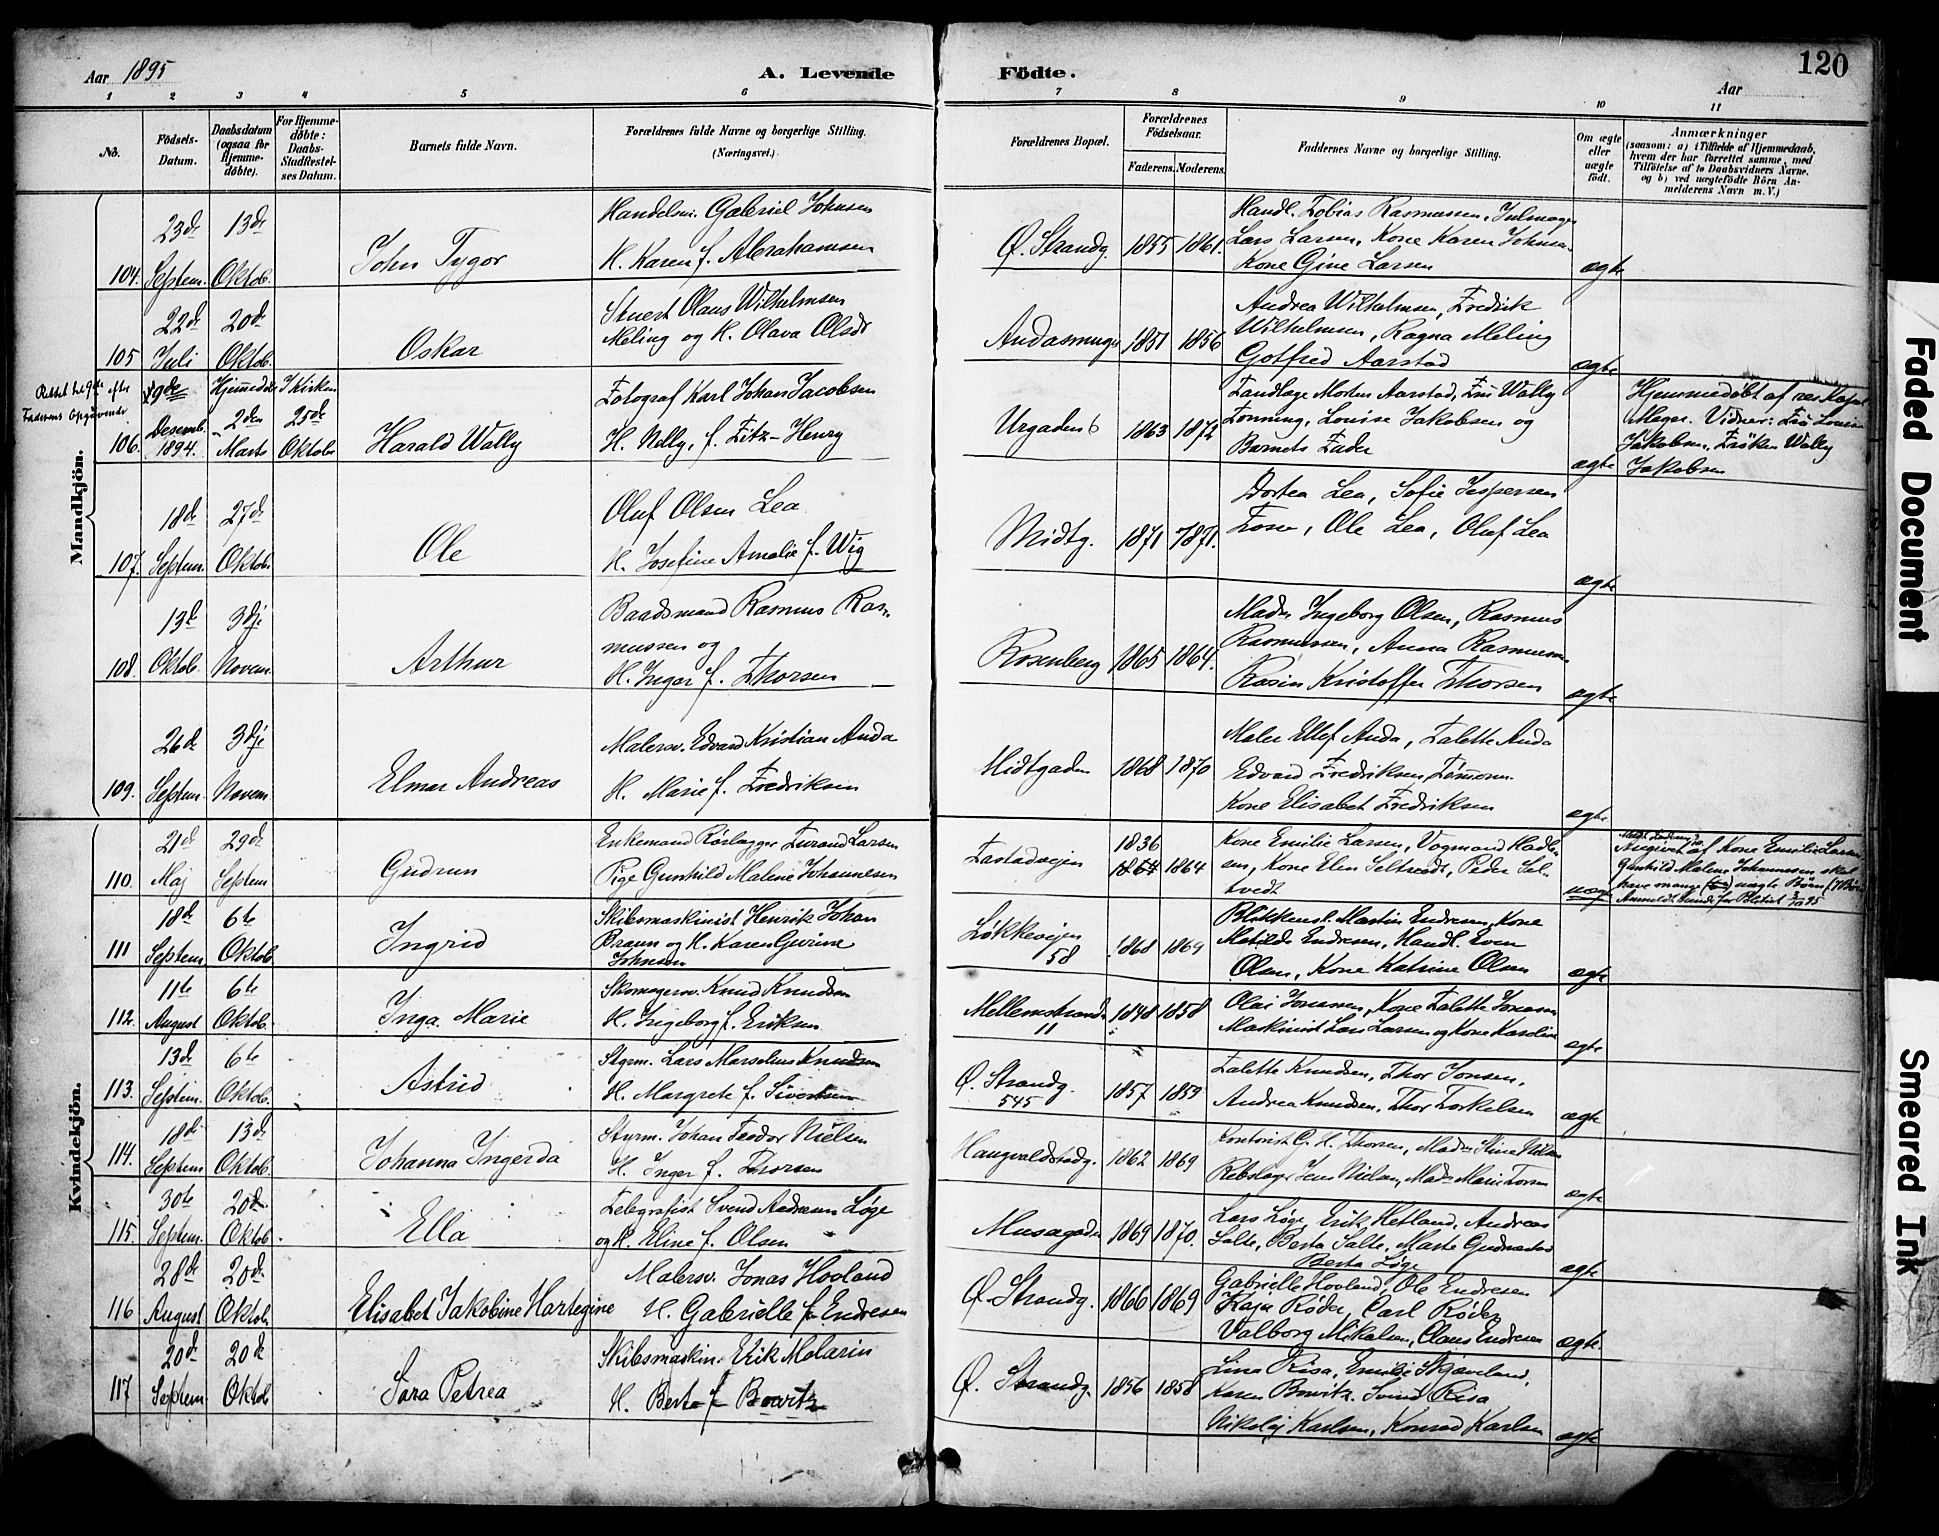 Aar 1895
A. Levende Födte.
120
Aar
1 2 3 4 5 6 7 8 9 10 11
No.
Födsels-Datum.
Daabsdatum (ogsaa for Hjemme-döbte).
For Hjemme-döbte: Daabs-Stadfæstel-ses Datum.
Barnets fulde Navn.
Forældrenes fulde Navne og borgerlige Stilling. (Næringsvei.)
Forældrenes Bopæl.
Forældrenes Födselsaar.
Faderens. Moderens.
Faddernes Navne og borgerlige Stilling.
Om ægte eller uægte födt.
Anmærkninger (saasom: a) i Tilfælde af Hjemmedaab, hvem der har forrettet samme, med Tilföielse af to Daabsvidners Navne, og b) ved uægtefödte Börn An-melderens Navn m. V.)
Mandkjön.
104. 23de Septem. 13de Oktob.
John Tygor
Handelsm. Gabriel Johnsen
H. Karen f. Abrahamsen
Ø. Strandg. 1855 1861.
Handl. Tobias Rasmussen,
Lars Larsen, Kone Karen Johnsen
Kone Gine Larsen
ægte
105 22de Juli 20de Oktob.
Oskar
Stuert Olaus Wilhelmsen
Meling og H. Olava Olsdr
1851 1856
Andrea Wilhelmsen, Fredrik
Wilhelmsen, Ragna Meling
Gotfred Aarstad
ægte
Rettet til 9de efter
Faderens Opgivende
106. 9de Desemb. 1894. Hjemmedøbt 2den Marts I Kirken 25de Oktob.
Harald Wally
Fotograf Karl Johan Jacobsen
H. Nelly, f. Fitz-Henry
Urgaden 6 1863 1872
Tandlæge Morten Aarstad, Frk Wally
Fonning, Louise Jakobsen og
Barnets Fader
ægte
Hjemmedøbt af res. Kapel.
Meyer. Vidner: Frk Louise
Jakobsen, Frøken Wally
Jakobsen
107. 18de Septem. 27de Oktob.
Ole
Oluf Olsen Lea
H. Josefine Amalie f. Wig
Midtg. 1871 1871.
Dortea Lea, Sofie Jespersen
Ole Lea, Oluf Lea
ægte
108. 13de Oktob. 3dje Novem.
Arthur
Baadsmand Rasmus Ras-
mussen og
H. Inger f. Thorsen
Rosenberg 1865 1864.
Madm Ingeborg Olsen, Rasmus
Rasmussen, Anna Rasmussen
Rasin Kristoffer Thorsen
ægte
109. 26de Septem. 3dje Novem
Elmar Andreas
Malersv. Edvard Kristian Anda
H. Marie f. Fredriksen
Midtgaden 1868 1870
Maler Ellef Anda, Talette Anda
Edvard Fredriksen, Tømmerm.
Kone Elisabet Fredriksen
ægte
Kvindekjön.
110. 21de Maj 29de Septem
Gudrun
Enkemand Rørlægger Larsen
Pige Gunhild Malene Johannesen
1836 1864
Kone Emilie Larsen, Vognmand
Kone Elen Seltvedt, Peder Sel-
tvedt
uægte
Angivet af Kone Emilie Larsen
Gunhild Malene Johannesen skal
have mange uægte Børn (7 Børn
111 18de Septem. 6te Oktob
Ingrid
Skibsmaskinist Henrik Johan
Braun og H. Karen Gurine
Johnsen
Løkkevejen
58
1868 1869
Blikkensl. Martin Endresen, Kone
Matilde Endresen, Handl. Even
Olsen, Kone Katrine Olsen
ægte
112. 11te August 6te Oktob.
Inga Marie
Skomagersv. Knud Knudsen
H. Ingeborg f. Eriksen
Mellemstrandg.
11
1848 1858
Olai Jonassen, Kone Talette Jonassen
Maskinist Lars Larsen og Kone Karoline
ægte
113. 13de Septem. 6te Oktob.
Astrid
Styrm. Lars Marselius Knudsen
H. Margrete f. Sivertsen
Ø. Strandg.
545
1857 1859
Talette Knudsen, Thor Jonsen,
Andrea Knudsen, Thor Torkelsen
ægte
114. 18de Septem 13de Oktob.
Johanna Ingerda
Styrm. Johan Teodor Nielsen
H. Inger f. Thorsen
Haugvaldstadg. 1862 1869
Kontorist C. H. Thorsen, Madm Stine Nielsen
Rebslager Jens Nielsen, Madm Marie Torsen
ægte
115. 30te Septem. 20de Oktob.
Ella
Telegrafist Svend Andreasen Løge
og H. Eline f. Olsen
Musegaden 1869 1870.
Lars Løge, Erik Hetland, Andreas
Salte, Berta Salte, Marte Gudmestad
Berta Løge
ægte
116 28de August 20de Oktob.
Elisabet Jakobine Hartegine
Malersv. Jonas Hovland
H. Gabrielle f. Endresen
Ø. Strandg. 1866 1869
Gabrielle Hovland, Ole Endresen
Kaja Røder, Carl Røder
Valborg Mikalsen, Claus Endresen
ægte
117 20de Septem. 20de Oktob
Sara Petrea
Skibsmaskin. Erik Molarin
H. Berte f. Bowitz
Ø. Strandg. 1856 1858
Lina Risa, Emilie Skjæveland,
Karen Bowitz. Svend Risa
Nikolaj Karlsen, Konrad Karlsen
ægte
Faded Document
Smeared Ink